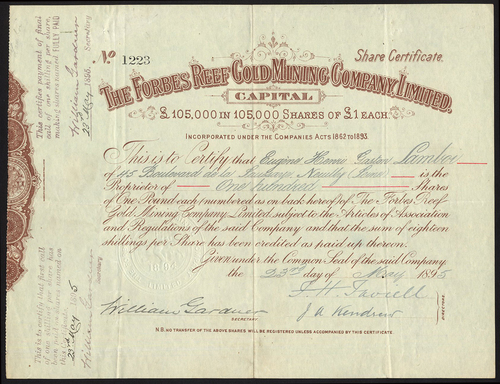 Share Certificate.
No 1223
THE FORBES REEF GOLD MINING COMPANY, LIMITED,
CAPITAL
£105,000 IN 105,000 SHARES OF £1 EACH.
INCORPORATED UNDER THE COMPANIES ACTS 1862 TO 1893.
This is to Certify that Eugène Henri Gaston Lamboi
of 45 Boulevard de la Neuilly is the
Proprietor of One hundred Shares
of One Pound each, (numbered as on back hereof) of The Forbes Reef
Gold Mining Company, Limited, subject to the Articles of Association
and Regulations of the said Company and that the sum of eighteen
shillings per Share has been credited as paid up thereon.
Given under the Common Seal of the said Company,
the 23rd day of May 1895
William Gardner
SECRETARY.
J A Kendrew
N.B. NO TRANSFER OF THE ABOVE SHARES WILL BE REGISTERED UNLESS ACCOMPANIED BY THIS CERTIFICATE.
This certifies payment of final
call of one shilling per share,
making shares named FULLY PAID
William Gardner
Secretary
This is to certify that first call
of one shilling per share has
been paid on shares named on
this
William Gardner